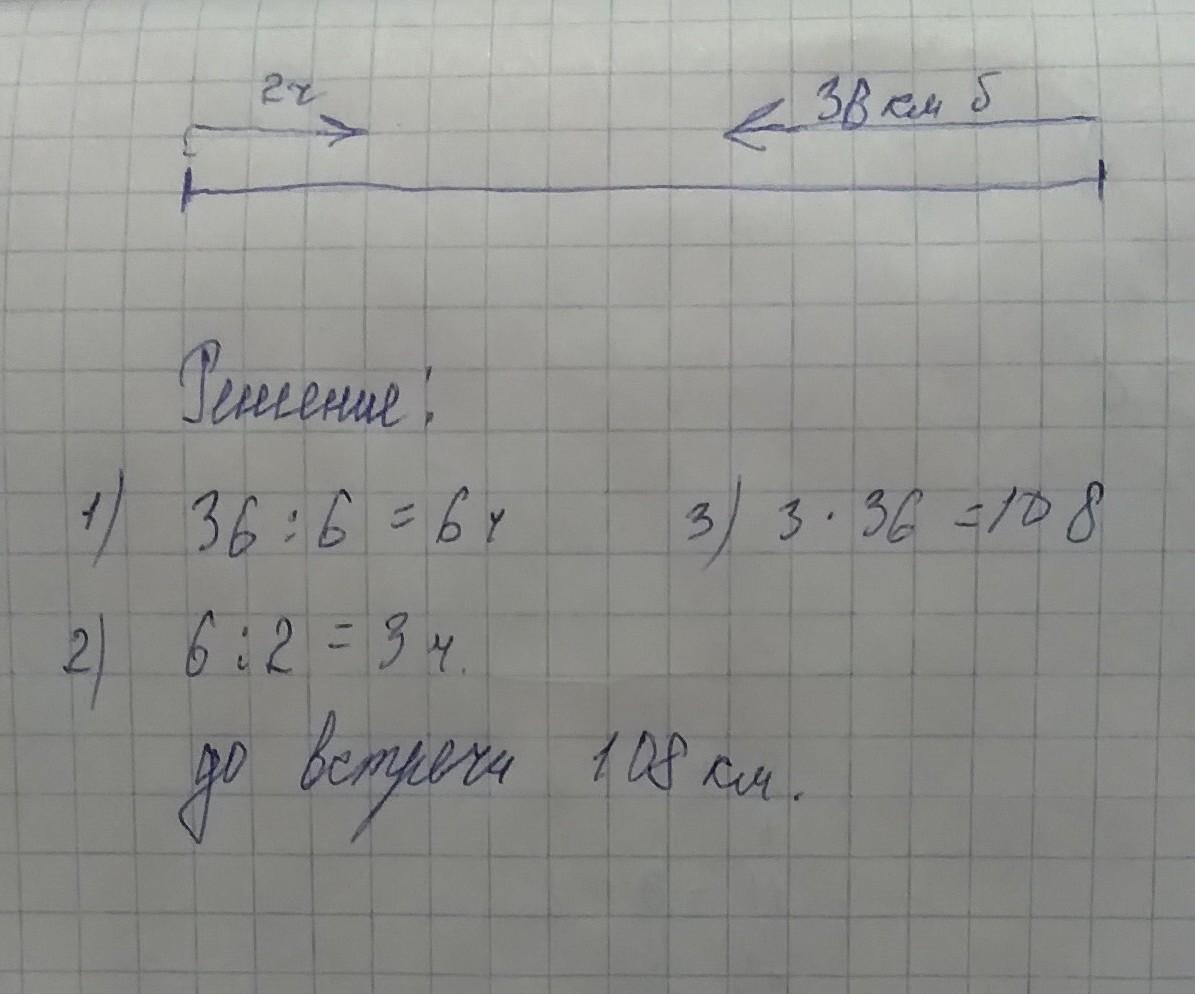 2ч
36 км б
Решение:
1) 36 : 6 = 6 ч
3) 3 · 36 = 108
2) 6 : 2 = 3 ч.
до встречи 108 км.